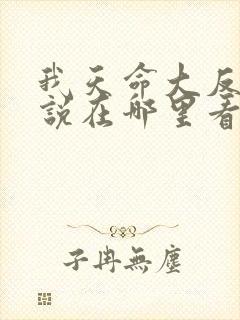 我天命大反
說在哪里看
子冉無塵